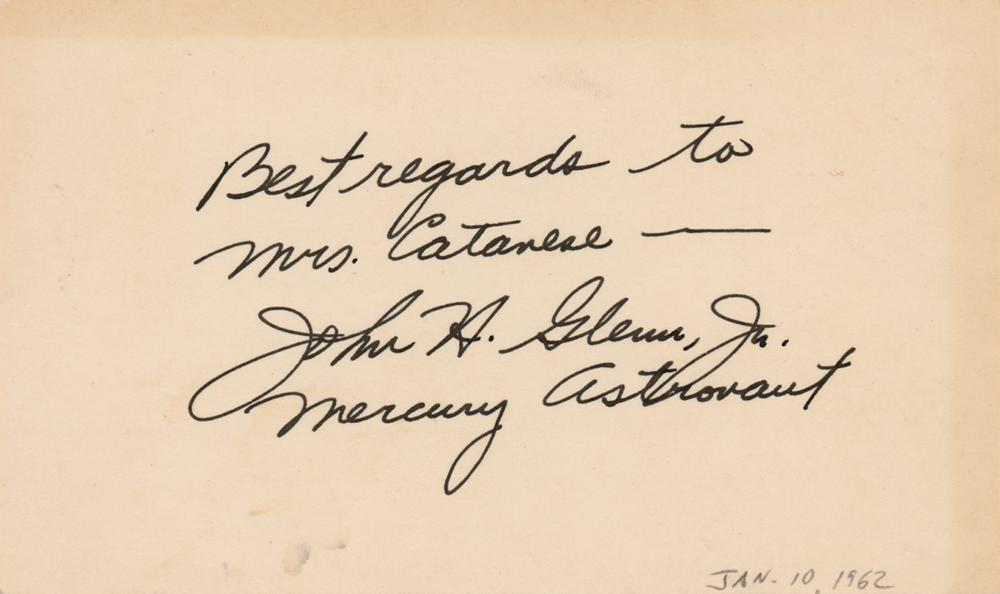 Best regards to
Mrs. Catanese —
John H. Glenn, Jr.
Mercury Astronaut
JAN. 10, 1962